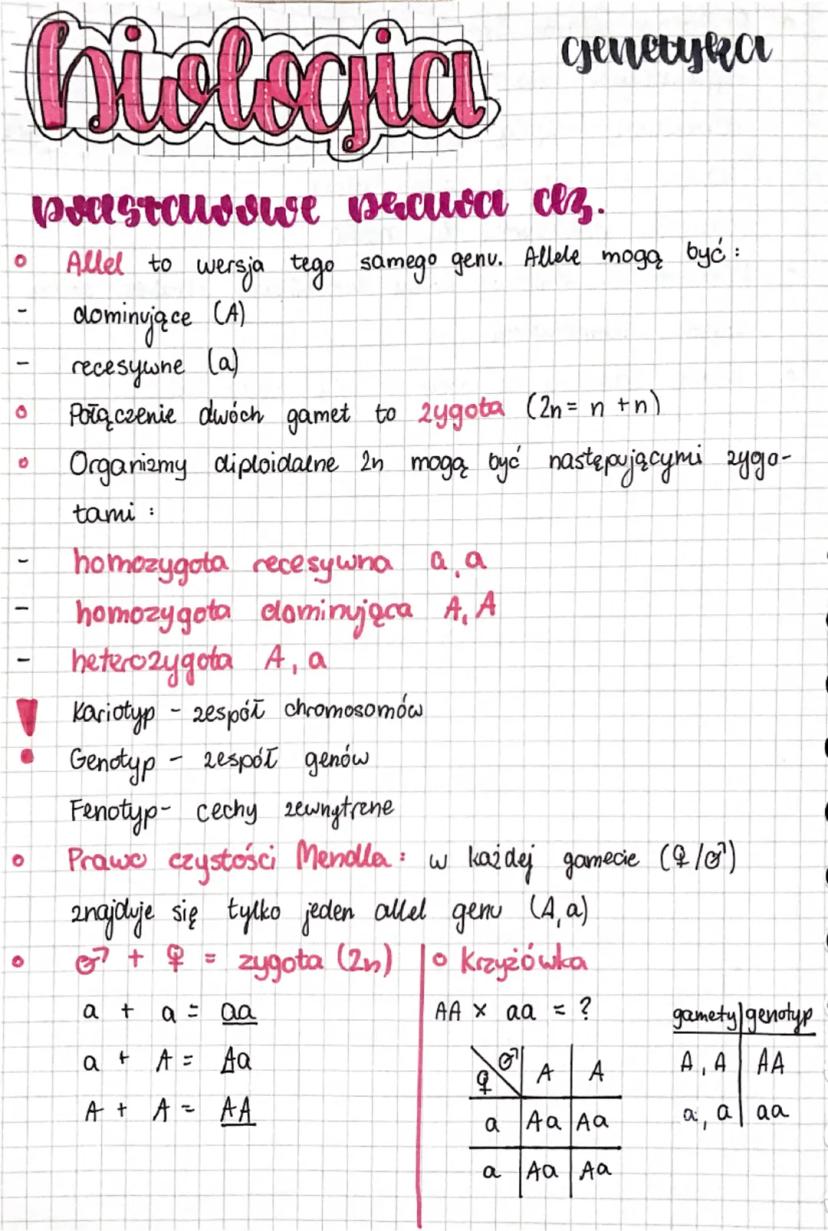 biologia
genetyka
podstawowe prawa cz.
○ Allel to wersja tego samego genu. Allele mogą być:
- dominujące (A)
- recesywne (a)
○ Połączenie dwóch gamet to zygota (2n = n + n)
○ Organizmy diploidalne 2n mogą być następującymi zygo-
tami:
- homozygota recesywna a, a
- homozygota dominująca A, A
- heterozygota A, a
! Kariotyp - zespół chromosomów
Genotyp - zespół genów
Fenotyp- cechy zewnętrzne
○ Prawo czystości Mendla: w każdej gamecie (♀/♂)
znajduje się tylko jeden allel genu (A, a)
○ ♂ + ♀ = zygota (2n)
a + a = aa
a + A = Aa
A + A = AA
○ Krzyżówka
AA × aa = ?
♀ ♂ A A
a Aa Aa
a Aa Aa
gamety genotyp
A, A AA
a, a aa